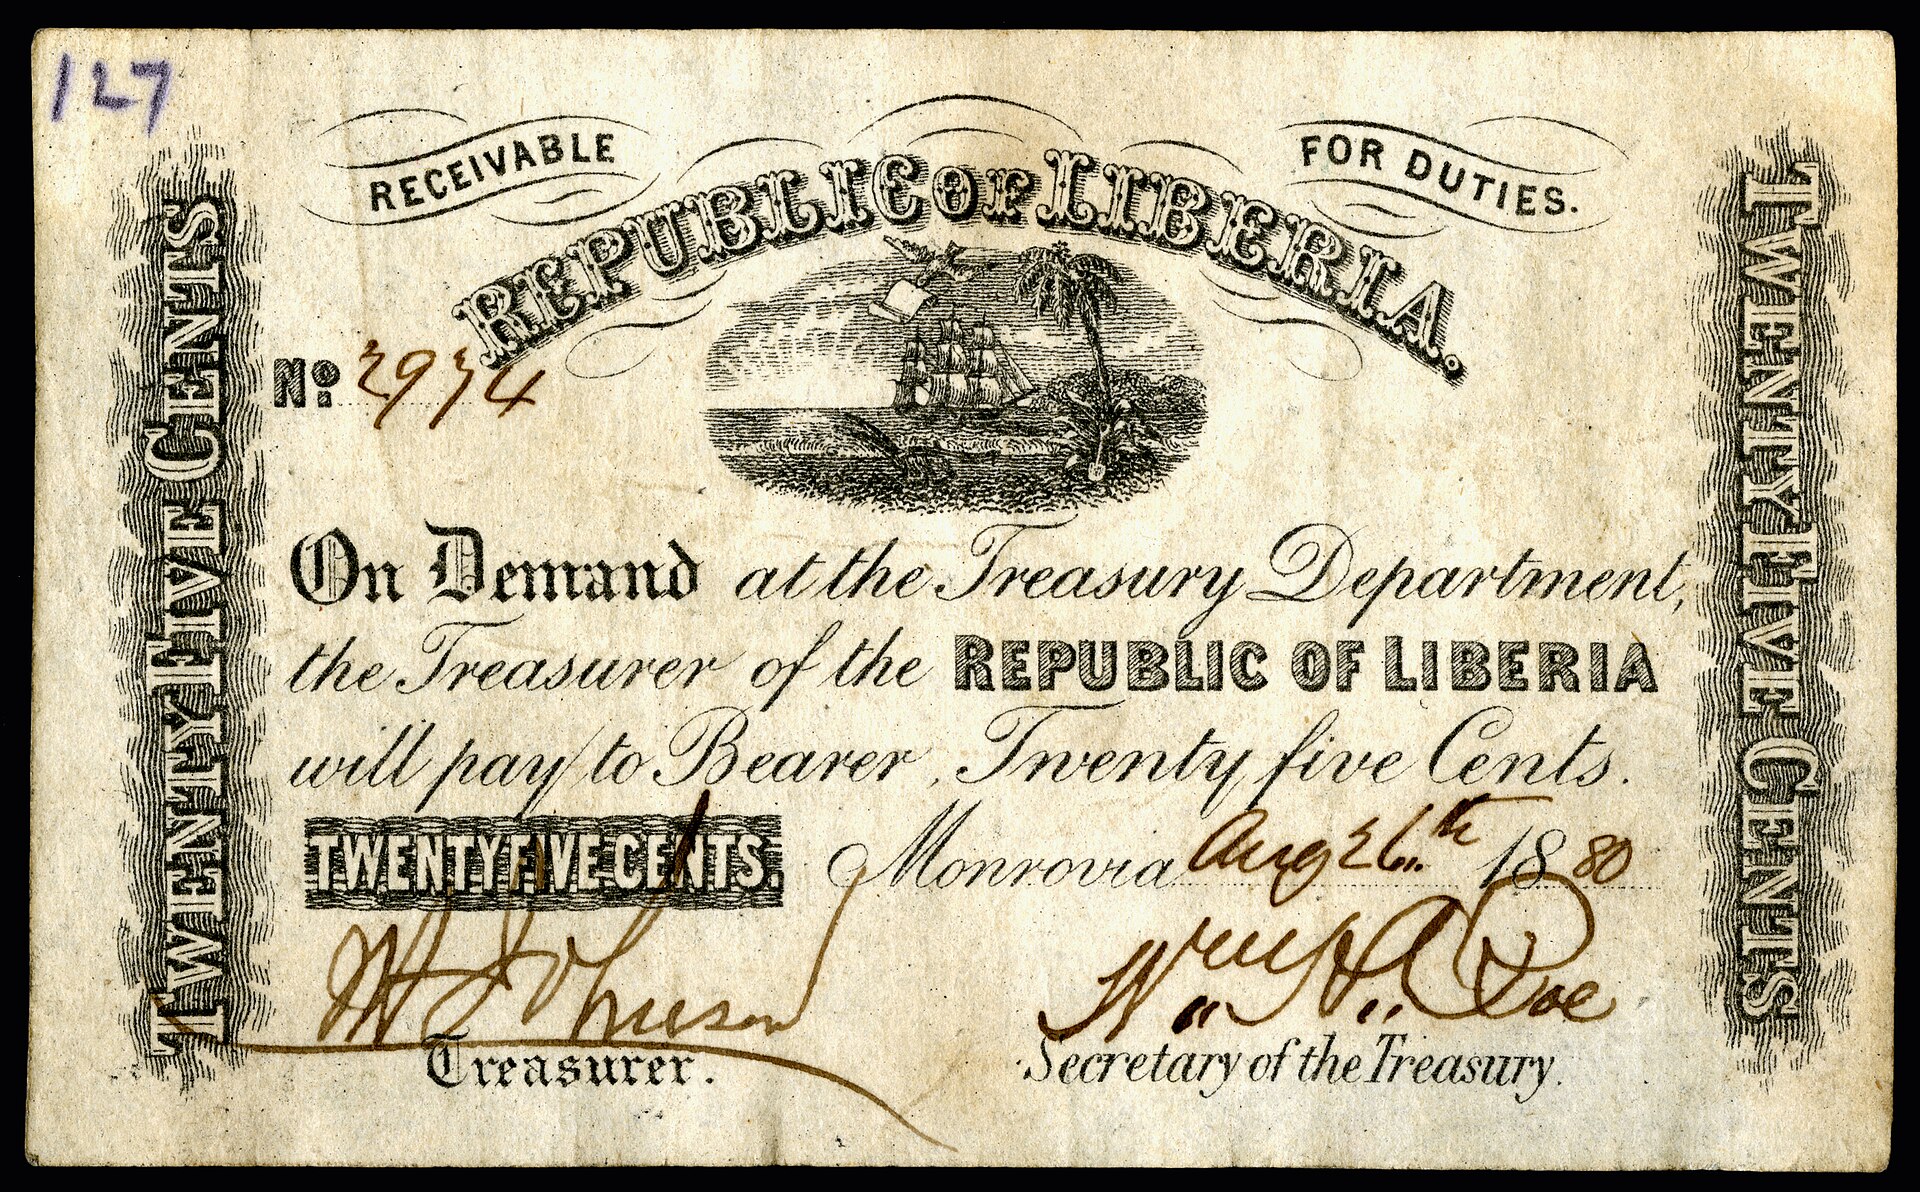 127
RECEIVABLE
FOR DUTIES.
REPUBLIC OF LIBERIA.
No. 2974
TWENTY FIVE CENTS
TWENTY FIVE CENTS
On Demand at the Treasury Department,
the Treasurer of the REPUBLIC OF LIBERIA
will pay to Bearer, Twenty five Cents.
TWENTY FIVE CENTS.
Monrovia Aug 26th 1880
Johnson
Treasurer.
Secretary of the Treasury.